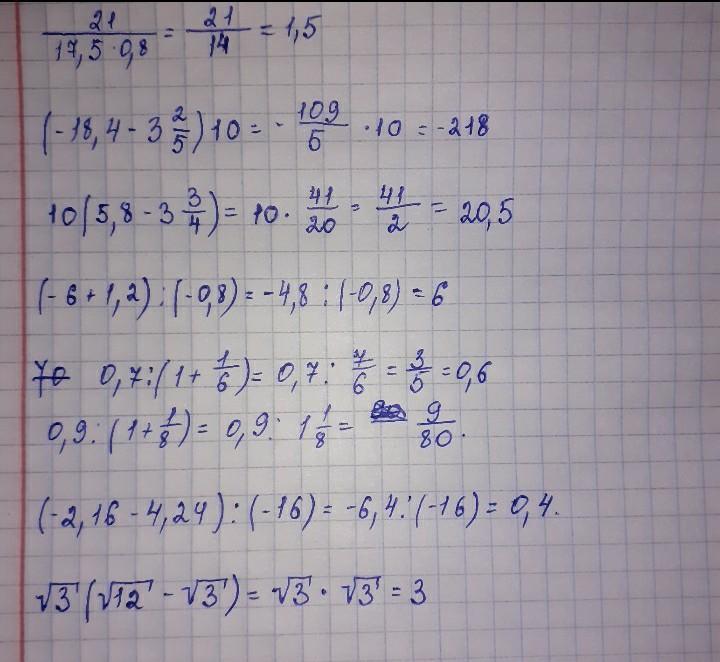 21/(17,5·0,8) = 21/14 = 1,5
(-18,4 - 3 2/5) 10 = - 109/5 · 10 = -218
10(5,8 - 3 3/4) = 10 · 41/20 = 41/2 = 20,5
(-6 + 1,2) : (-0,8) = -4,8 : (-0,8) = 6
0,7 : (1 + 1/6) = 0,7 : 7/6 = 3/5 = 0,6
0,9 : (1 + 1/8) = 0,9 : 1 1/8 = 9/80.
(-2,16 - 4,24) : (-16) = -6,4 : (-16) = 0,4.
√3 (√12 - √3) = √3 · √3 = 3